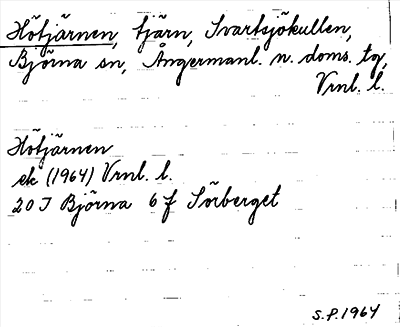 Hötjärnen, tjärn, Svartsjökullen,
Björna sn, Ångermanl. n. doms. tg,
Vrnl. l.
Hötjärnen
ek (1964) Vrnl. l.
20 J Björna 6 f Sörberget
S.P. 1964